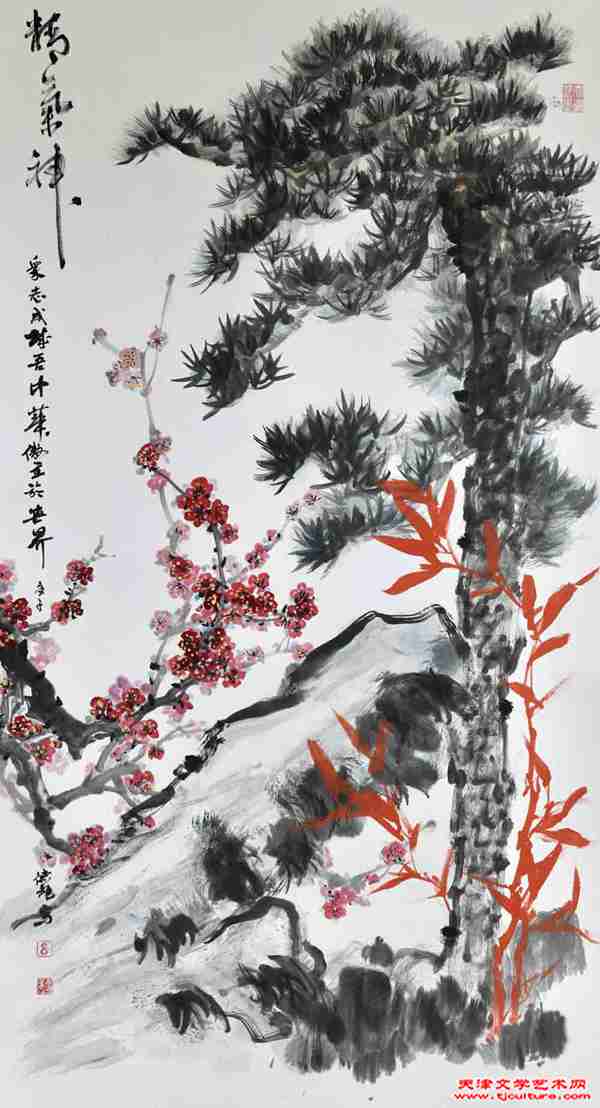 精气神
众志成城吾中华傲立於世界
庚子
天津文学艺术网
www.tjculture.com